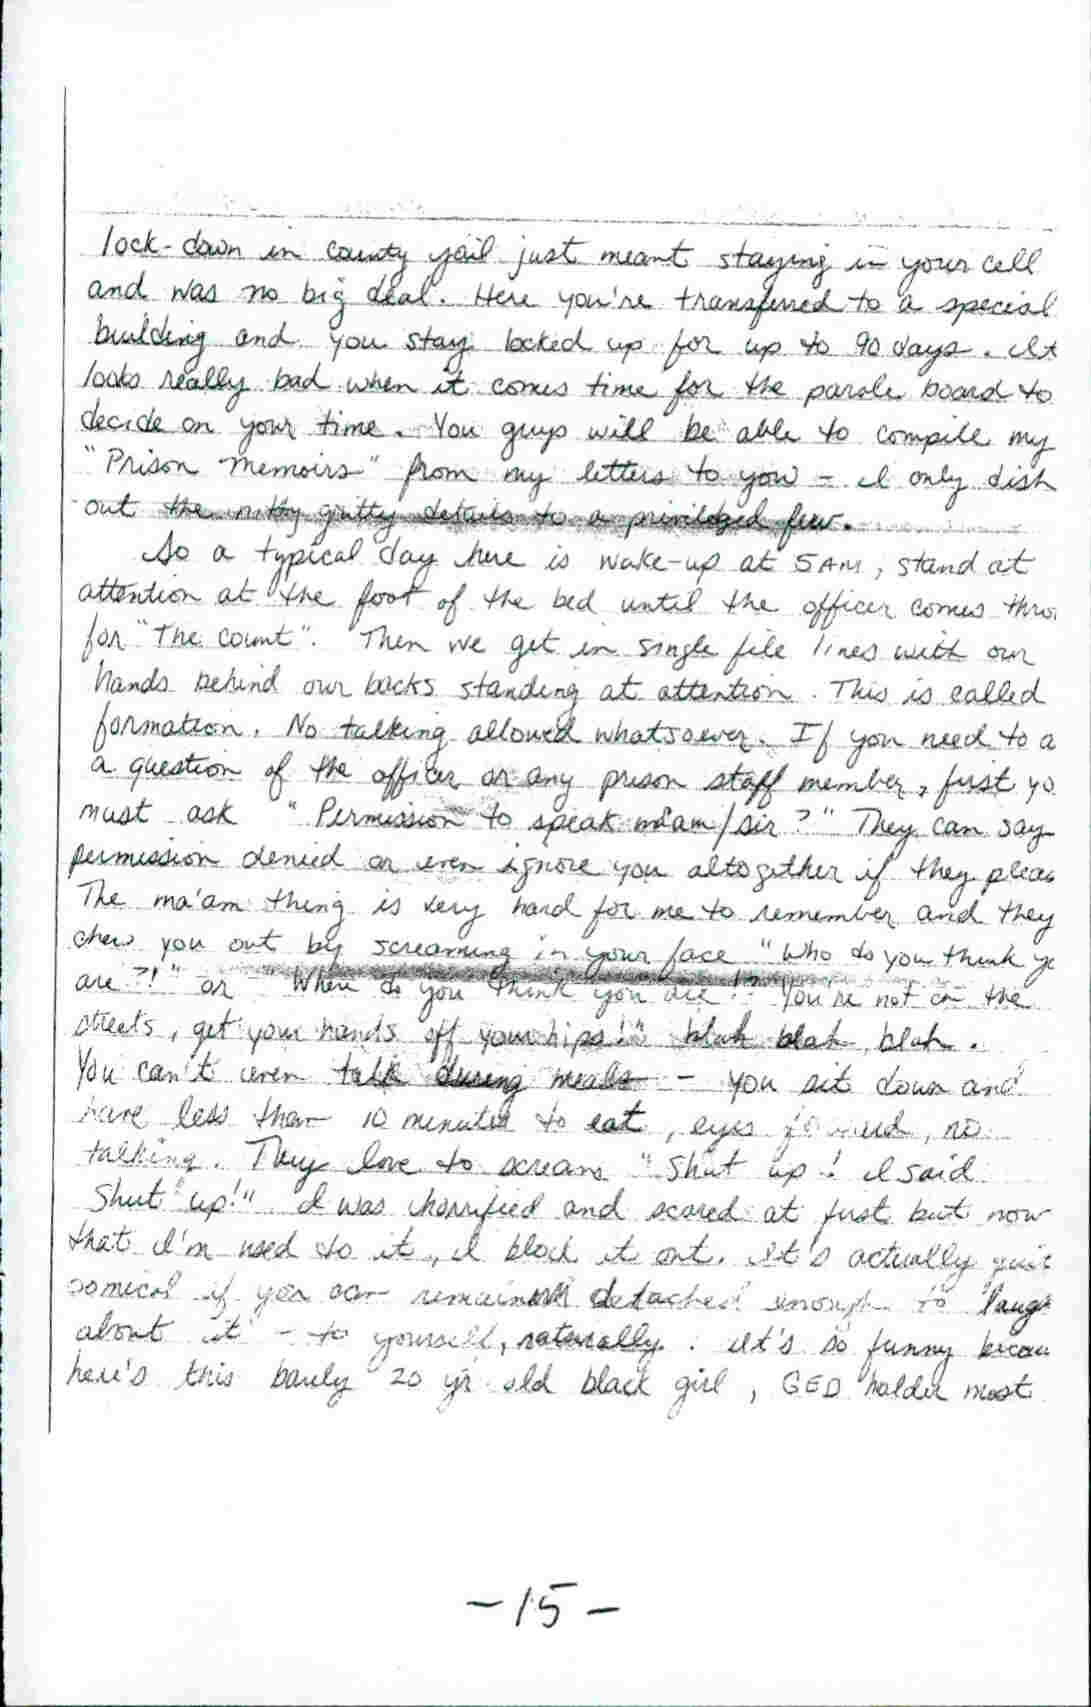 lock-down in county jail just meant staying in your cell
and was no big deal. Here you're transferred to a special
building and you stay locked up for up to 90 days. It
looks really bad when it comes time for the parole board to
decide on your time. You guys will be able to compile my
"Prison Memoirs" from my letters to you - I only dish
out the nitty gritty details to a priviledged few.
So a typical day here is wake-up at 5 AM, stand at
attention at the foot of the bed until the officer comes thro
for "The count". Then we get in single file lines with our
hands behind our backs standing at attention. This is called
formation. No talking allowed whatsoever. If you need to a
a question of the officer or any prison staff member, first yo
must ask "Permission to speak ma'am/sir?" They can say
permission denied or even ignore you altogether if they pleas
The ma'am thing is very hard for me to remember and they
chew you out by screaming in your face "Who do you think yo
are?!" or "Where do you think you are!?" You're not on the
streets, get your hands off your hips!" blah blah, blah.
You can't even talk during meals - you sit down and
have less than 10 minutes to eat, eyes forward, no
talking. They love to scream "Shut up! I said
Shut up!" I was horrified and scared at first but now
that I'm used to it, I block it out. It's actually quit
comical if you can remain detached enough to laugh
about it - to yourself, naturally. It's so funny becau
here's this burly 20 yr old black girl, GED holder most
-15-